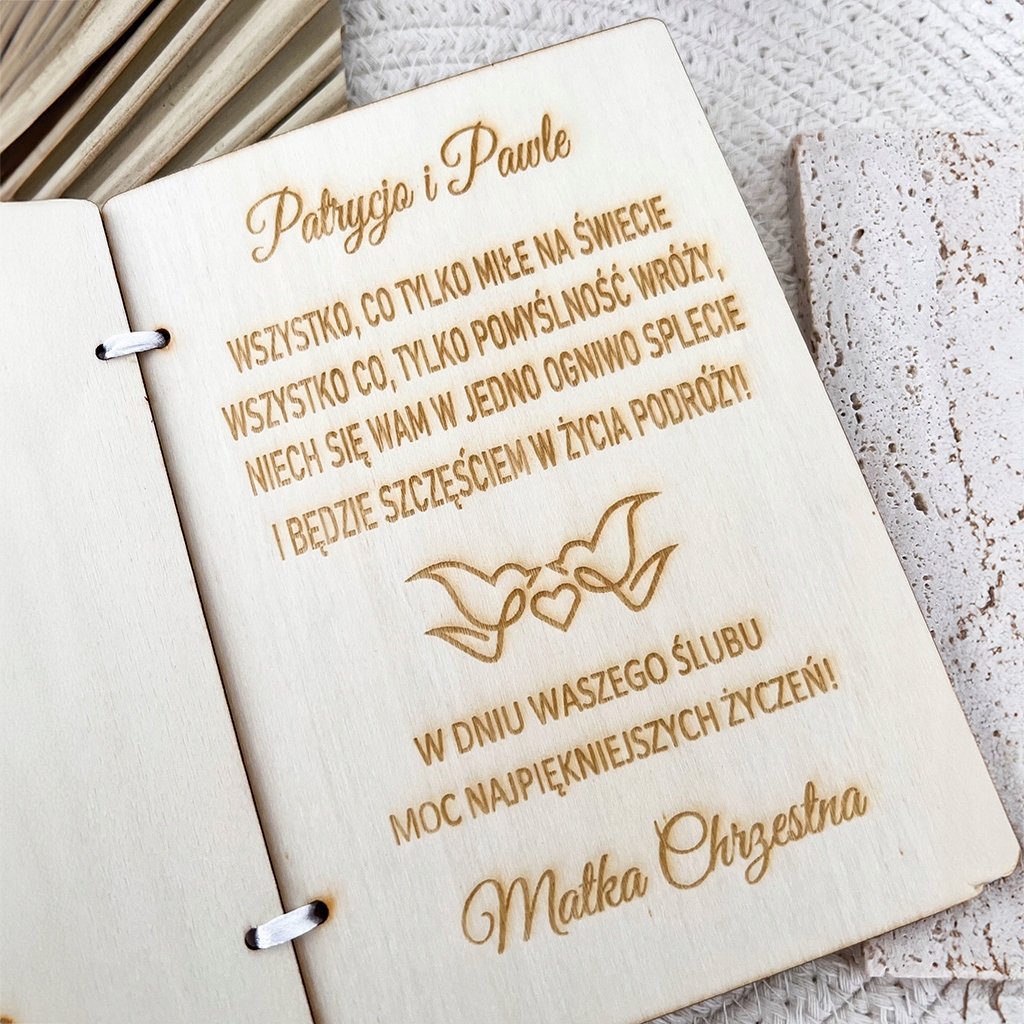 Patrycjo i Pawle
WSZYSTKO, CO TYLKO MIŁE NA ŚWIECIE
WSZYSTKO CO, TYLKO POMYŚLNOŚĆ WRÓŻY,
NIECH SIĘ WAM W JEDNO OGNIWO SPLECIE
I BĘDZIE SZCZĘŚCIEM W ŻYCIA PODRÓŻY!
W DNIU WASZEGO ŚLUBU
MOC NAJPIĘKNIEJSZYCH ŻYCZEŃ!
Matka Chrzestna